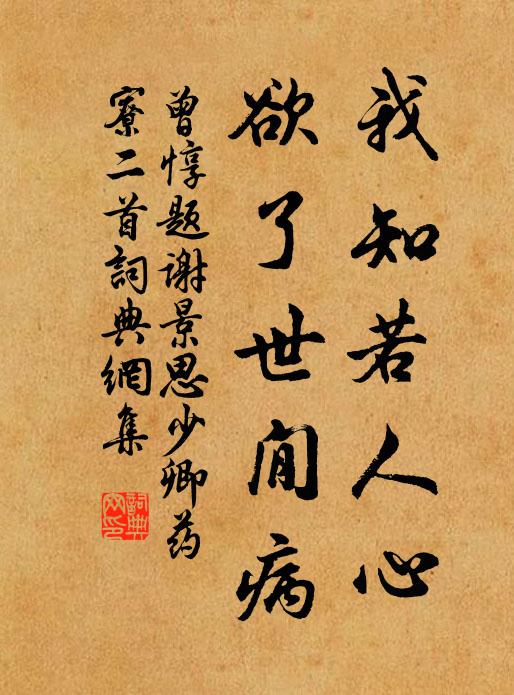 我知若人心
欲了世间病
曾惇题谢景思少卿药
寮二首詞典網集
詞典
网印